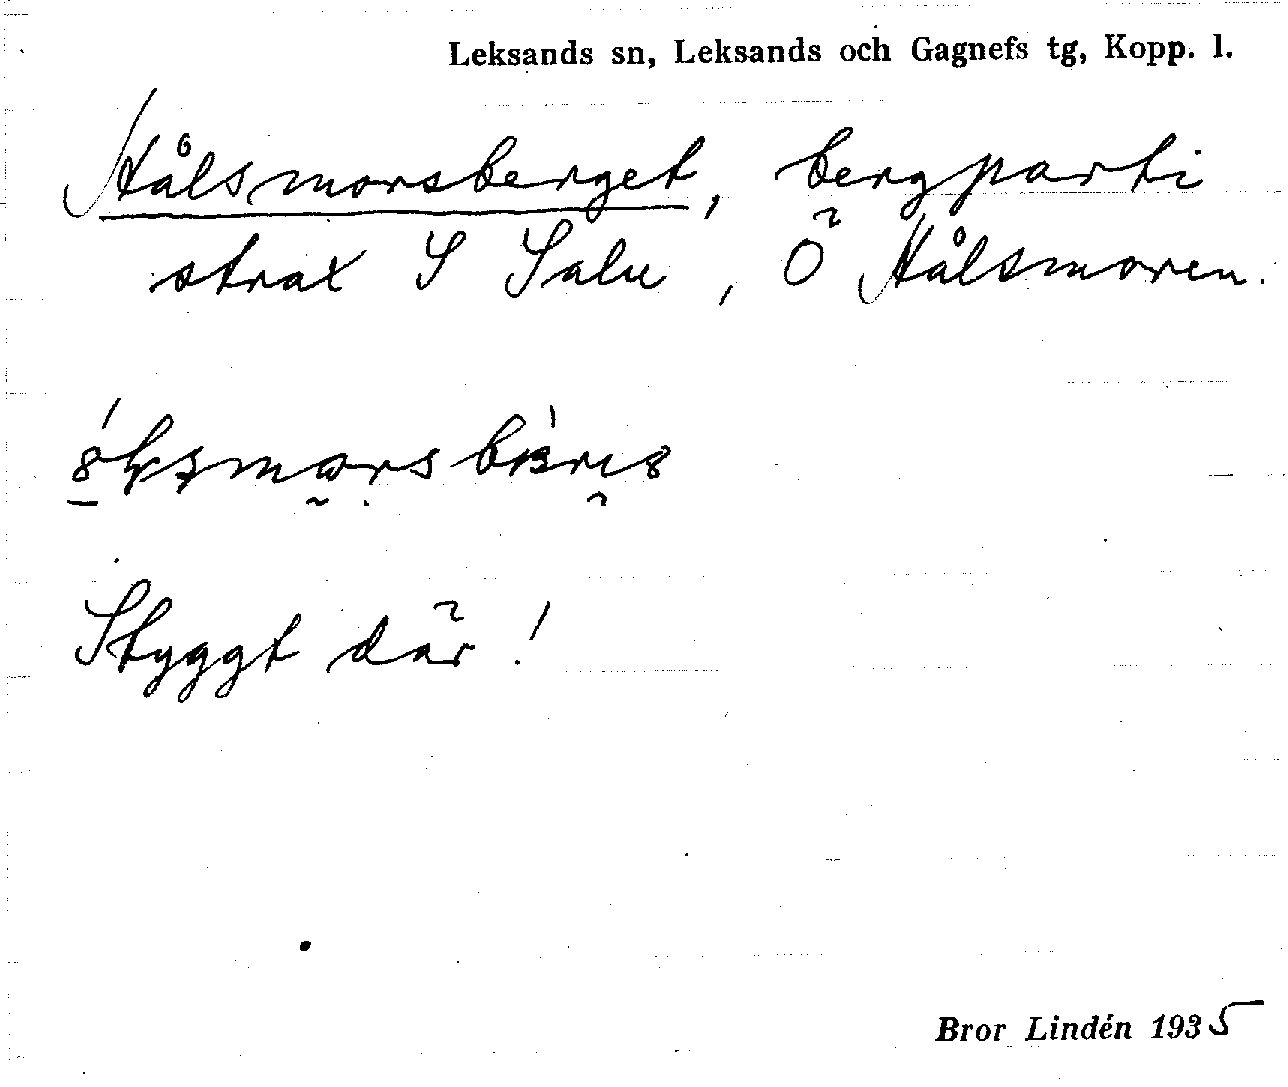 Leksands sn, Leksands och Gagnefs tg, Kopp. l.
Hålsmorsberget, bergparti
strax S Salu, Ö Hålsmoren.
Styggt där!
Bror Lindén 1935